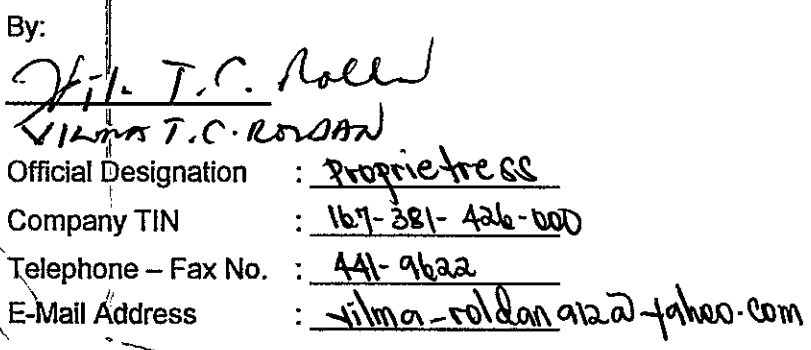 By:
Vil. T.C. Roldan
VILMA T.C. ROLDAN
Official Designation : Proprietress
Company TIN : 167-381-426-000
Telephone – Fax No. : 441-9622
E-Mail Address : vilma_roldan912@yahoo.com